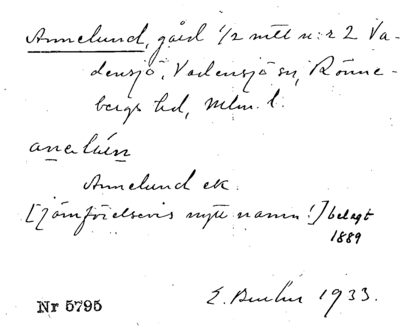 Annelund, gård 1/2 mtl n:r 2 Va-
densjö, Vadensjö sn, Rönne-
bergs hd, Mlm. l.
Annelund ek.
[jämförelsevis nytt namn!] belagt
1889
Nr 5795 E. 1933.